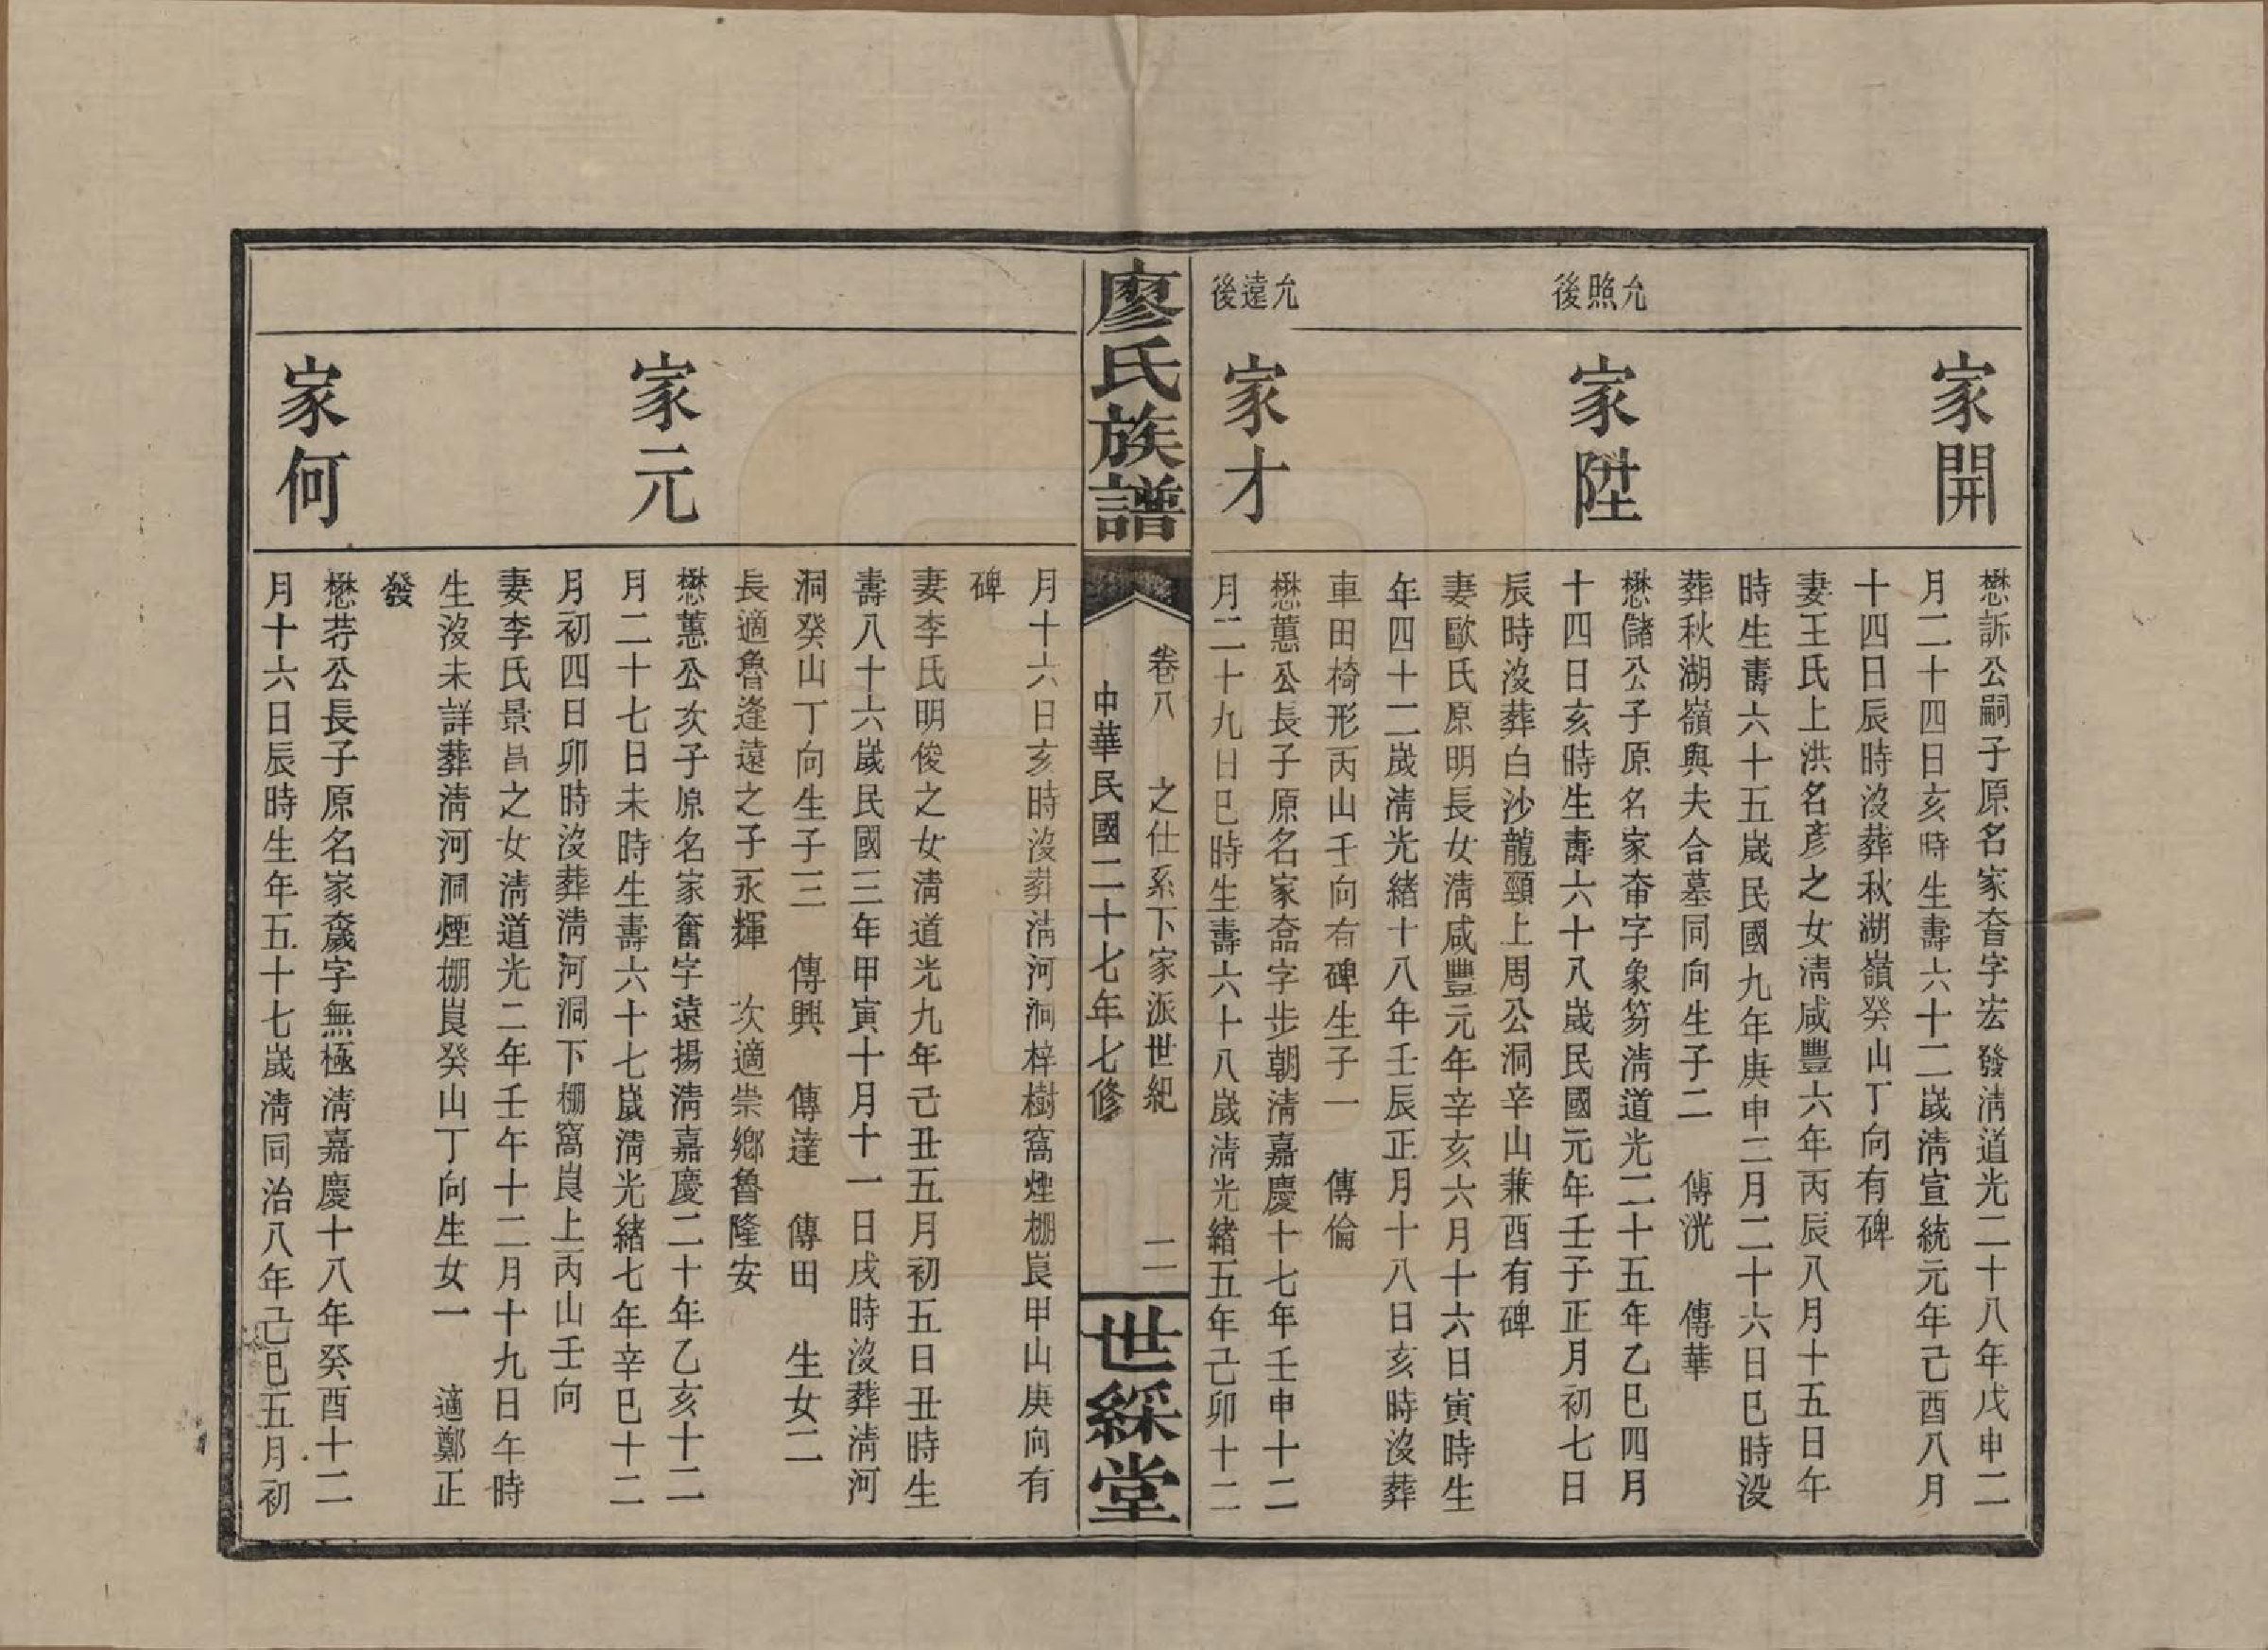 家開
懋訴公嗣子原名家奞字宏發淸道光二十八年戊申二
月二十四日亥時生壽六十二嵗淸宣統元年己酉八月
十四日辰時沒葬秋湖嶺癸山丁向有碑
妻王氏上洪名彥之女淸咸豐六年丙辰八月十五日午
時生壽六十五嵗民國九年庚申二月二十六日巳時沒
葬秋湖嶺與夫合墓同向生子二　傳洸　傳華
允照後
家陞
懋儲公子原名家奤字象笏淸道光二十五年乙巳四月
十四日亥時生壽六十八嵗民國元年壬子正月初七日
辰時沒葬白沙龍頸上周公洞辛山兼酉有碑
妻歐氏原明長女淸咸豐元年辛亥六月十六日寅時生
年四十二嵗淸光緒十八年壬辰正月十八日亥時沒葬
車田椅形丙山壬向有碑生子一　傳倫
允遠後
家才
懋蕙公長子原名家奋字步朝淸嘉慶十七年壬申十二
月二十九日巳時生壽六十八嵗淸光緒五年己卯十二
廖氏族譜
卷八　之仕系下家派世紀　二
中華民國二十七年七修
世綵堂
月十六日亥時沒葬淸河洞梓樹窩煙棚崀甲山庚向有
碑
妻李氏明俊之女淸道光九年己丑五月初五日丑時生
壽八十六嵗民國三年甲寅十月十一日戌時沒葬淸河
洞癸山丁向生子三　傳興　傳達　傳田　生女二
長適魯逢遠之子永輝　次適崇鄕魯隆安
家元
懋蕙公次子原名家奮字遠揚淸嘉慶二十年乙亥十二
月二十七日未時生壽六十七嵗淸光緒七年辛巳十二
月初四日卯時沒葬淸河洞下棚窩崀上丙山壬向
妻李氏景昌之女淸道光二年壬午十二月十九日午時
生沒未詳葬淸河洞煙棚崀癸山丁向生女一　適鄭正
發
家何
懋荇公長子原名家奯字無極淸嘉慶十八年癸酉十二
月十六日辰時生年五十七嵗淸同治八年己巳五月初